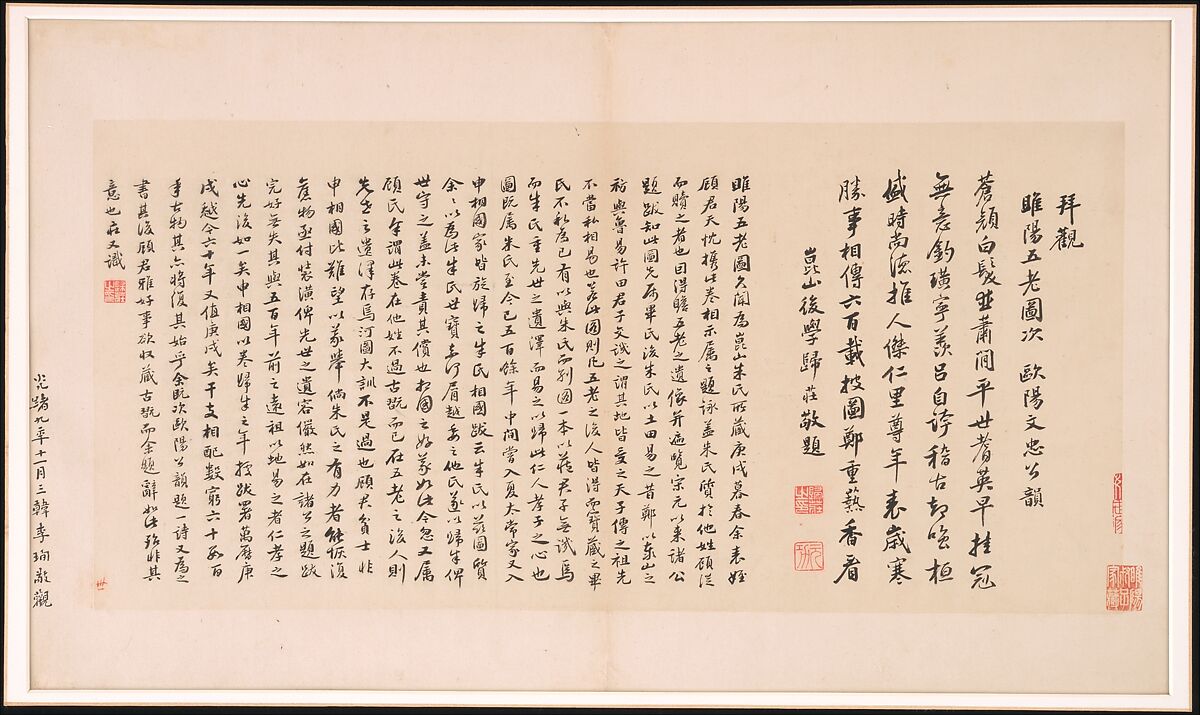 拜觀
睢陽五老圖次　歐陽文忠公韻
蒼顏白髮並肅閒平世耆英早挂冠
無意釣璜寧羨呂自誇稽古却嗤桓
盛時尚德推人傑仁里尊年表歲寒
勝事相傳六百載披圖鄭重爇香看
崑山後學歸莊敬題
睢陽五老圖久聞為崑山朱氏所藏庚戌暮春余表姪
顧君天忱攜此卷相示屬之題詠蓋朱氏質於他姓顧從
而贖之者也因得瞻五老之遺像并遍覽宋元以來諸公
題跋知此圖先屬畢氏後朱氏以土田易之昔鄭以泰山之
祊與魯易許田君子文譏之謂其地皆受之天子傳之祖先
不當私相易也若此圖則凡五老之後人皆得而寶藏之畢
氏不私為己有以與朱氏而別圖一本以藏君子無譏焉
而朱氏重先世之遺澤而易之以歸此仁人孝子之心也
圖既屬朱氏至今已五百餘年中間嘗入夏太常家又入
申相國家皆旋歸之朱氏相國跋云朱氏以茲圖質
余余以為此朱氏世寶輒屑越委之他氏遂以歸朱俾
世守之蓋未嘗責其償也相國之好義如此今忽又屬
顧氏余謂此卷在他姓不過古翫而已在五老之後人則
先世之遺澤存焉河圖大訓不是過也顧君貧士非
申相國比難望以義舉倘朱氏之有力者能恢復
舊物亟付裝潢俾先世之遺容儼然如在諸公之題跋
完好無失其與五百年前之遠祖以地易之者仁孝之
心先後如一矣申相國以卷歸朱之年按跋署萬曆庚
戌越今六十年又值庚戌矣干支相配數窮六十如百
年古物其亦將復其始乎余既次歐陽公韻題一詩又為之
書其後顧君雅好事欲收藏古翫而余題辭如此殆非其
意也莊又識
光緒九年十一月三韓李珣敬觀